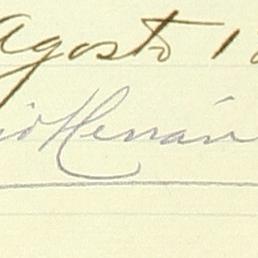 Agosto 1
io Hernán